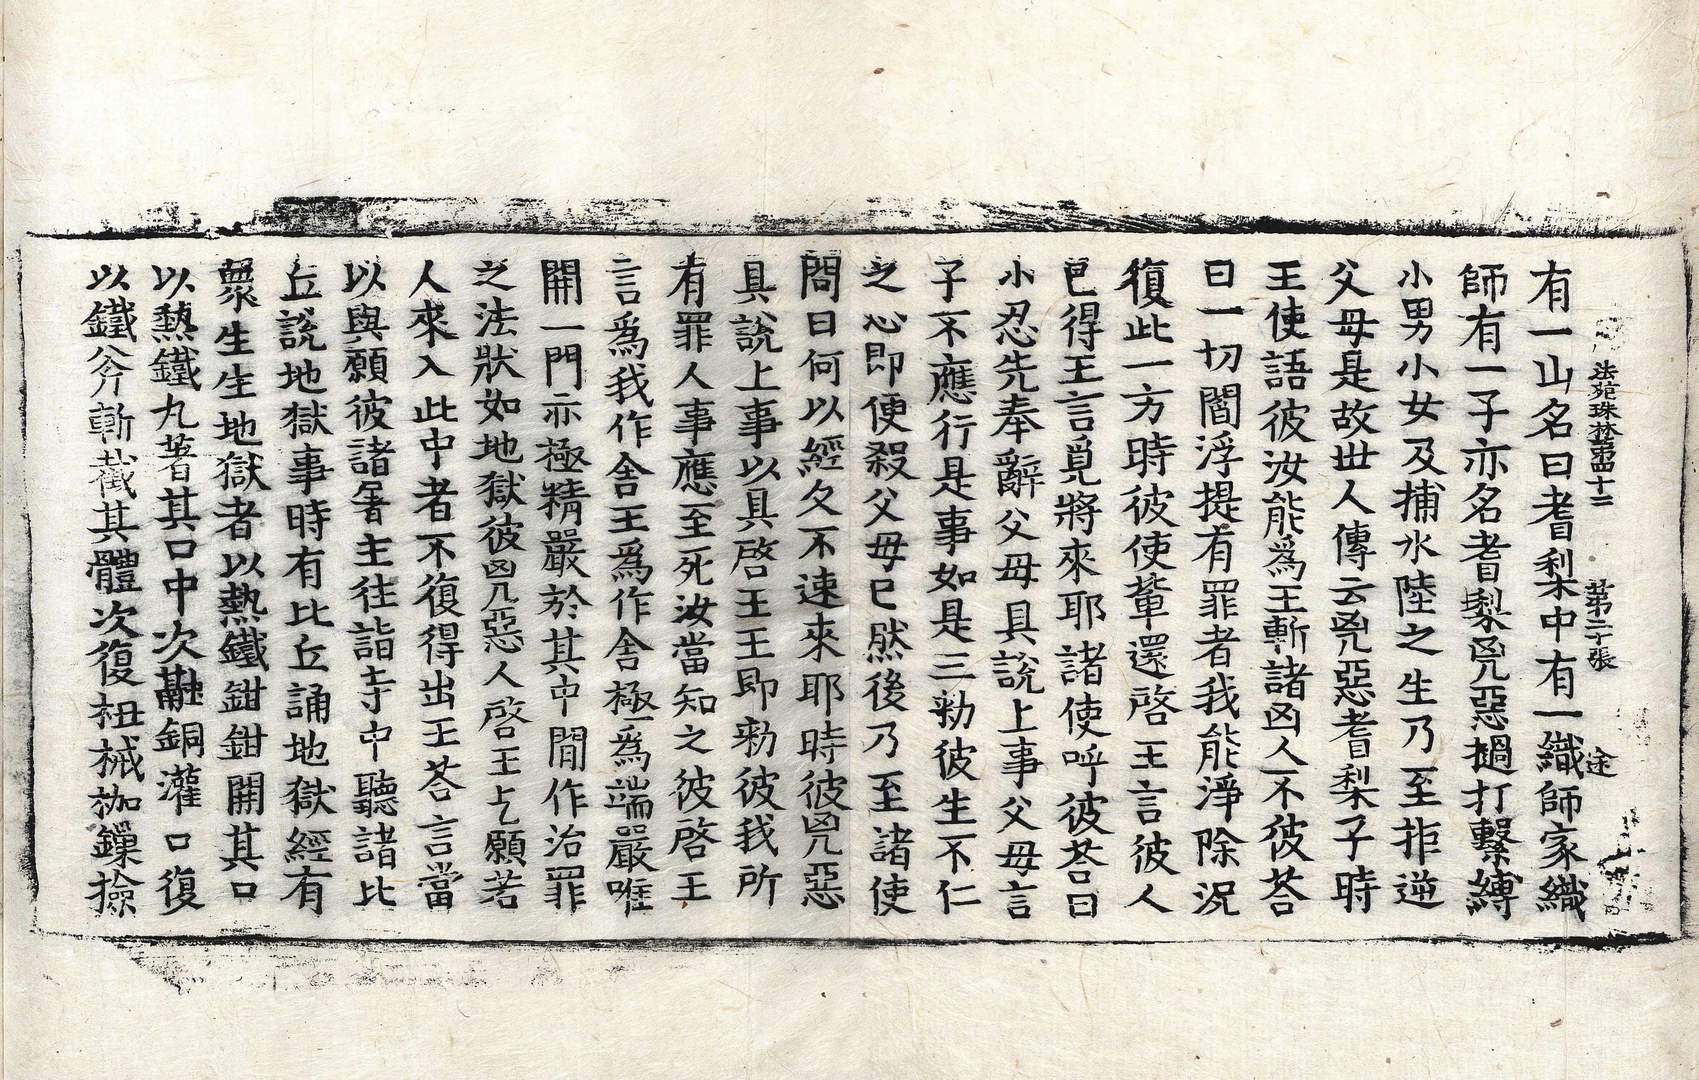 法苑珠林第四十二　第二十張　途
有一山名曰耆梨中有一織師家織
師有一子亦名耆梨兇惡撾打繫縛
小男小女及捕水陸之生乃至拒逆
父母是故世人傳云兇惡耆梨子時
王使語彼汝能爲王斬諸凶人不彼荅
曰一切閻浮提有罪者我能淨除況
復此一方時彼使輩還啓王言彼人
已得王言覓將來耶諸使呼彼荅曰
小忍先奉辭父母具說上事父母言
子不應行是事如是三勑彼生不仁
之心即便殺父母已然後乃至諸使
問曰何以經久不速來耶時彼兇惡
具說上事以具啓王王即勑彼我所
有罪人事應至死汝當知之彼啓王
言爲我作舍王爲作舍極爲端嚴唯
開一門亦極精嚴於其中間作治罪
之法狀如地獄彼凶兇惡人啓王乞願若
人來入此中者不復得出王荅言當
以與願彼諸署主往詣寺中聽諸比
丘說地獄事時有比丘誦地獄經有
衆生生地獄者以熱鐵鉗鉗開其口
以熱鐵丸著其口中次融銅灌口復
以鐵斧斬截其體次復杻械枷鏁撿